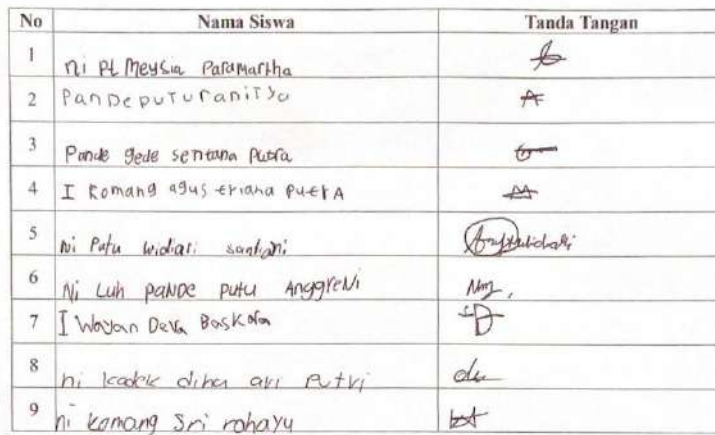 No Nama Siswa Tanda Tangan
1 ni Pt Meysia Paramartha
2 Pande puturanitya
3 Pande gede sentana putra
4 I komang agus triana putrA
5 Ni Putu widiari santiani
6 Ni Luh paNDe putu AnggreNi
7 I Wayan Deva Baskara
8 ni kadek dina ari putri
9 ni komang Sri rahayu